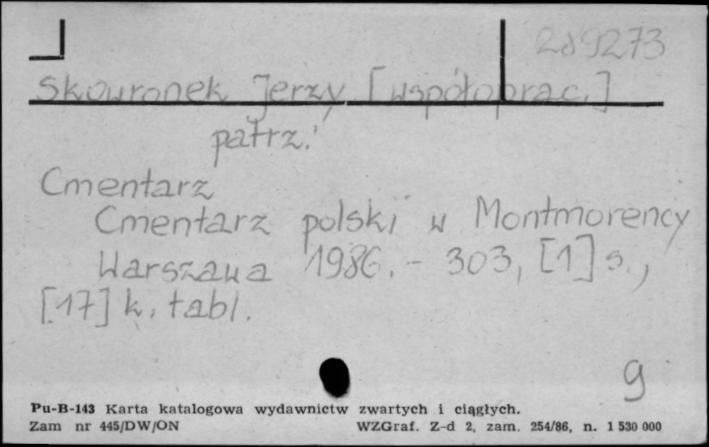 289273
Skowronek Jerzy [współoprac.]
patrz:
Cmentarz
Cmentarz polski w Montmorency
Warszawa 1986. - 303, [1] s.,
[17] k. tabl.
g
Pu-B-143 Karta katalogowa wydawnictw zwartych i ciągłych.
Zam nr 445/DW/ON WZGraf. Z-d 2, zam. 254/86, n. 1 530 000